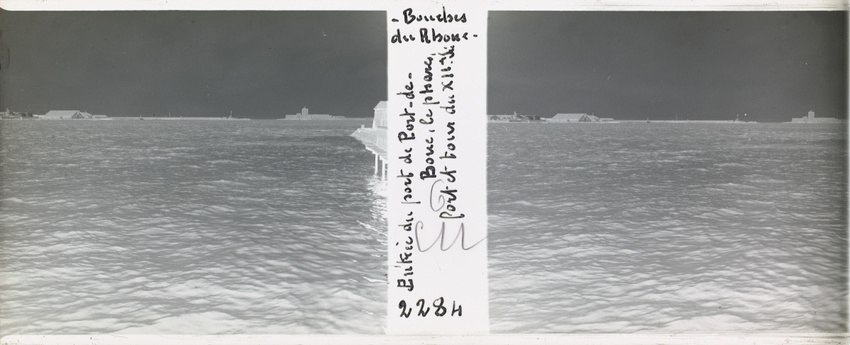 - Bouches
du Rhone -
Entrée du port de Port-de-
Bouc, le phare,
fort et tour du XIIe s.
2284